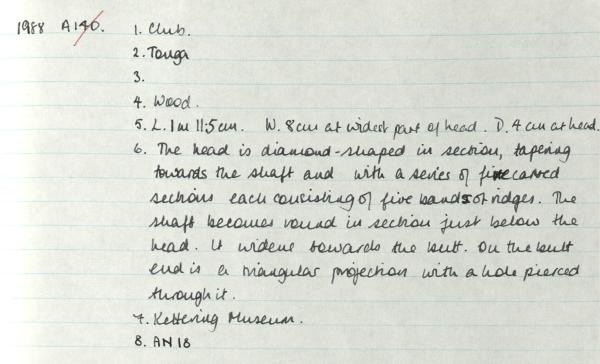 1988 A140. 1. Club.
2. Tonga
3.
4. Wood.
5. L. 1m 11.5cm. W. 8cm at widest part of head. D. 4cm at head.
6. The head is diamond-shaped in section, tapering
towards the shaft and with a series of five carved
sections each consisting of five bands of ridges. The
shaft becomes round in section just below the
head. It widens towards the butt. On the butt
end is a triangular projection with a hole pierced
through it.
7. Kettering Museum.
8. AN18